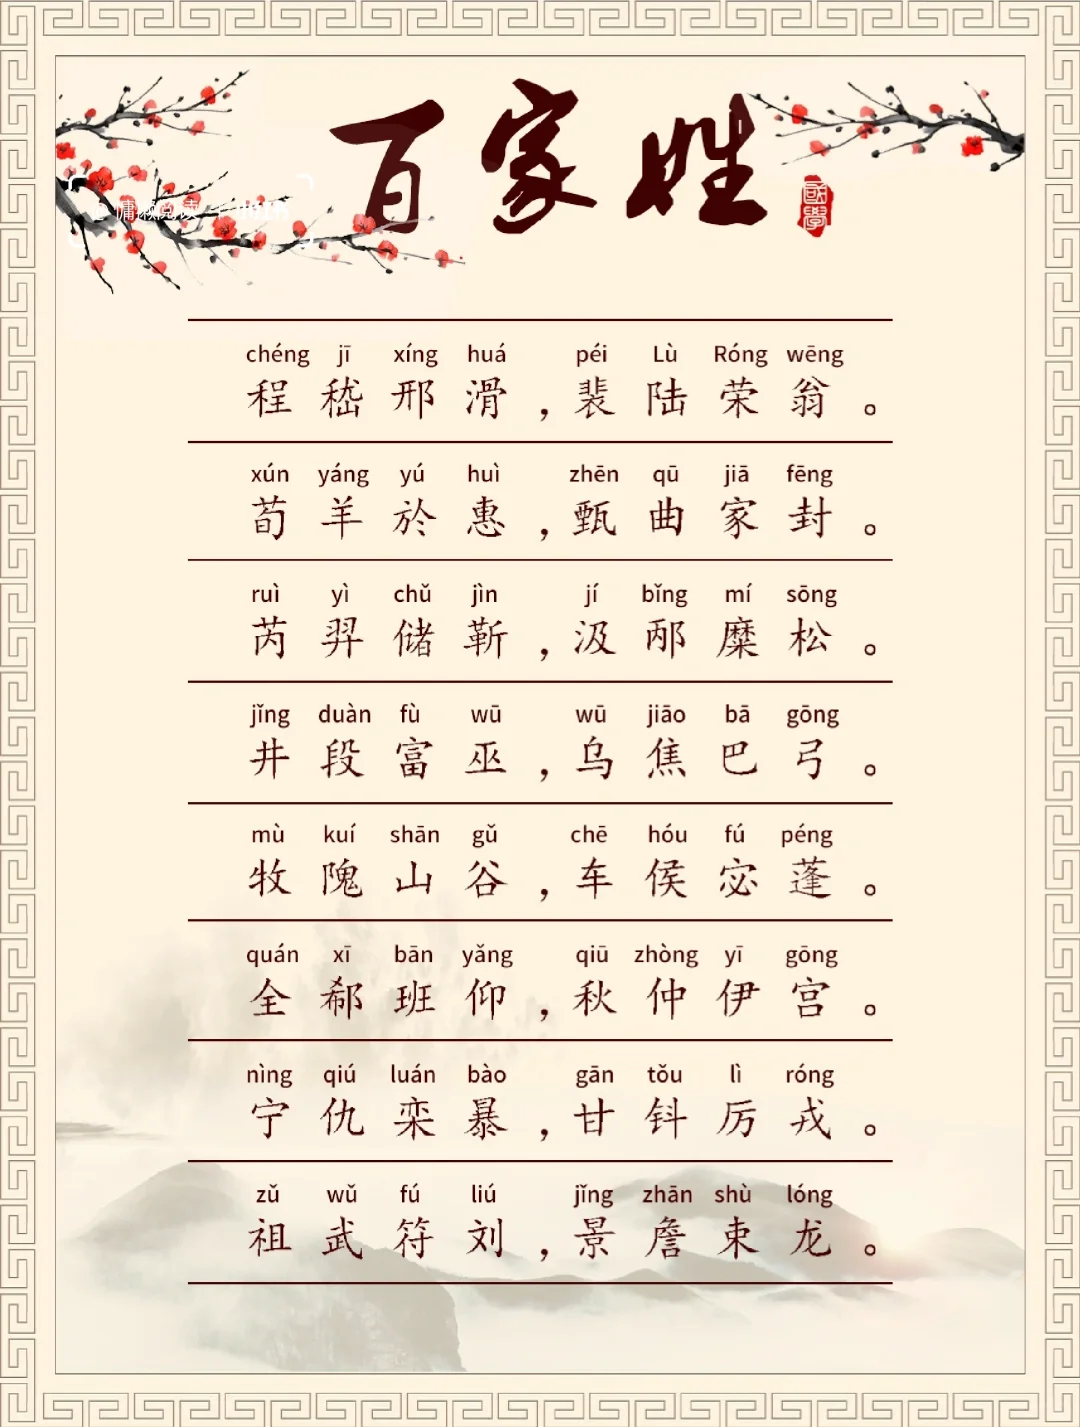 百家姓
國學
慵懒阅读
chéng jī xíng huá péi Lù Róng wēng
程 嵇 邢 滑 ，裴 陆 荣 翁 。
xún yáng yú huì zhēn qū jiā fēng
荀 羊 於 惠 ，甄 曲 家 封 。
ruì yì chǔ jìn jí bǐng mí sōng
芮 羿 储 靳 ，汲 邴 糜 松 。
jǐng duàn fù wū wū jiāo bā gōng
井 段 富 巫 ，乌 焦 巴 弓 。
mù kuí shān gǔ chē hóu fú péng
牧 隗 山 谷 ，车 侯 宓 蓬 。
quán xī bān yǎng qiū zhòng yī gōng
全 郗 班 仰 ，秋 仲 伊 宫 。
nìng qiú luán bào gān tǒu lì róng
宁 仇 栾 暴 ，甘 钭 厉 戎 。
zǔ wǔ fú liú jǐng zhān shù lóng
祖 武 符 刘 ，景 詹 束 龙 。